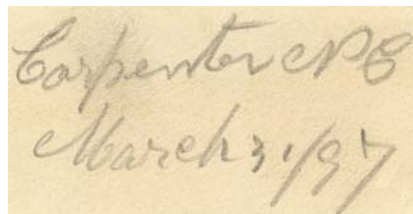 Carpenter N. C.
March 31/97